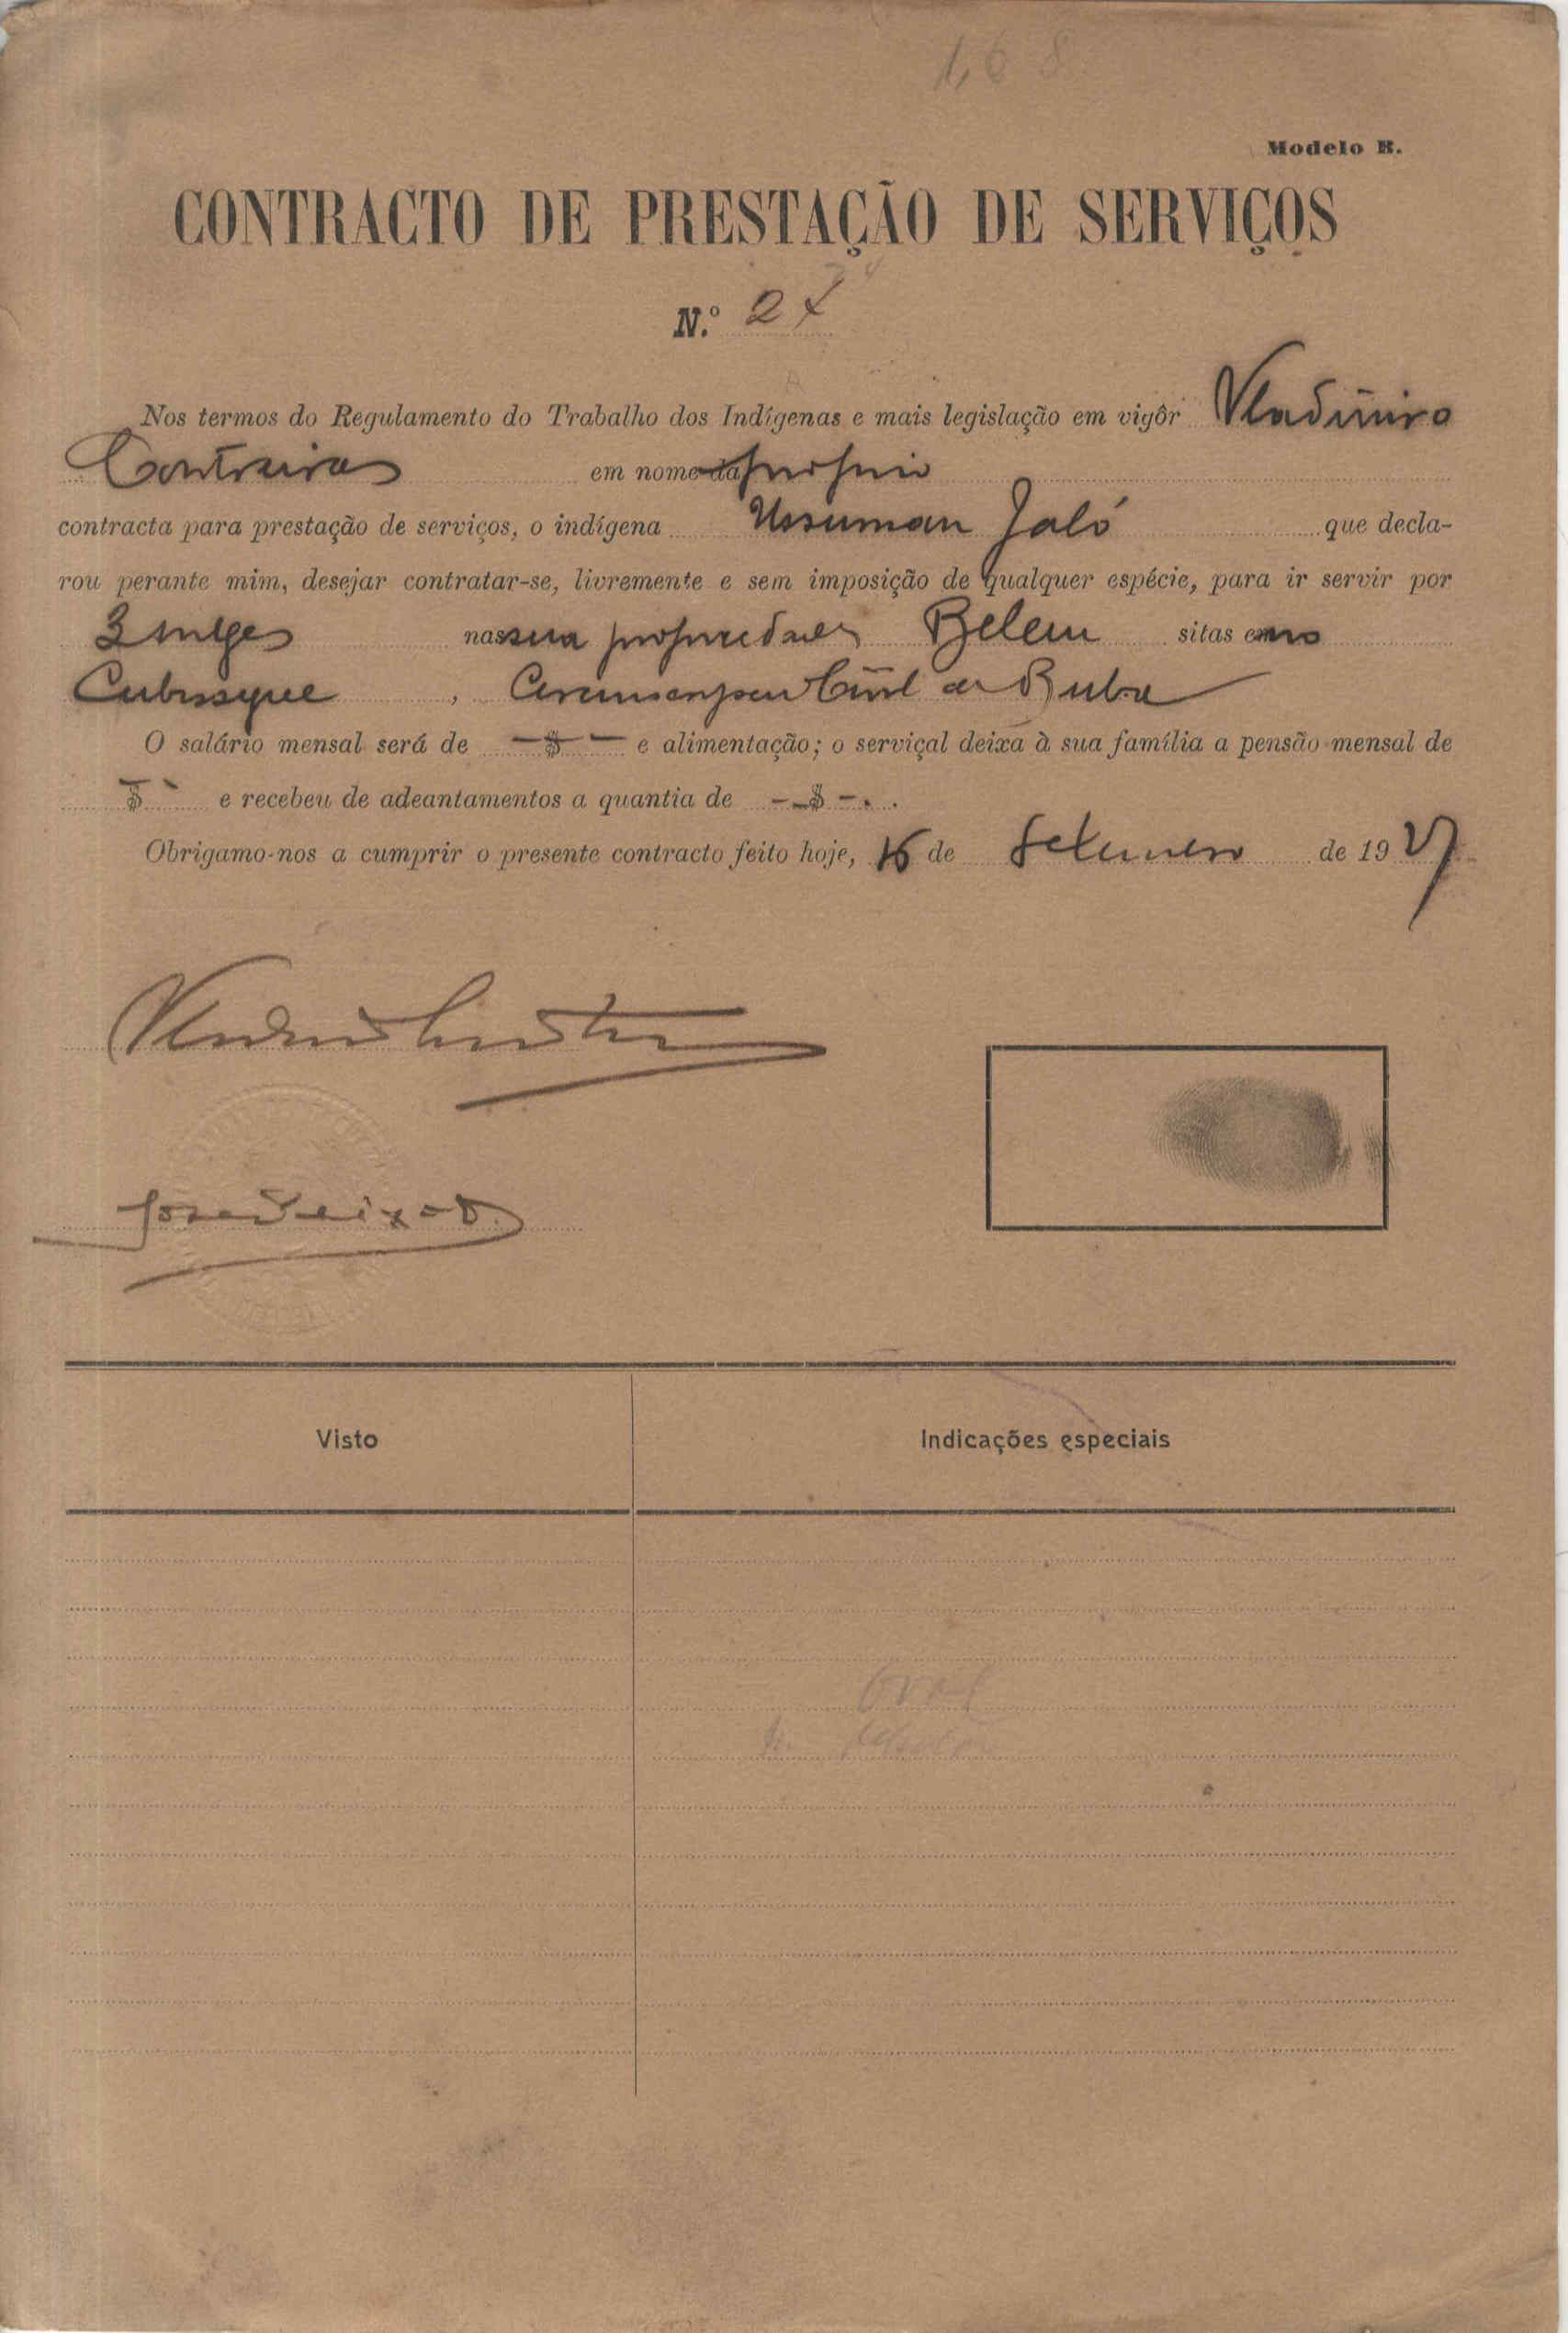 1,68
Modelo B.
CONTRACTO DE PRESTAÇÃO DE SERVIÇOS
N.º 27
Nos termos do Regulamento do Trabalho dos Indígenas e mais legislação em vigôr Vladimiro
Contreiras em nome da proprio
contracta para prestação de serviços, o indígena Ussuman Jaló que decla-
rou perante mim, desejar contratar-se, livremente e sem imposição de qualquer espécie, para ir servir por
3 mezes nas sua propriedades Belem sitas em no
Cubisseque, Circunscripção Civil de Buba
O salário mensal será de —$— e alimentação; o serviçal deixa à sua família a pensão mensal de
$ e recebeu de adeantamentos a quantia de —$—.
Obrigamo-nos a cumprir o presente contracto feito hoje, 16 de Setembro de 1927
Visto Indicações especiais